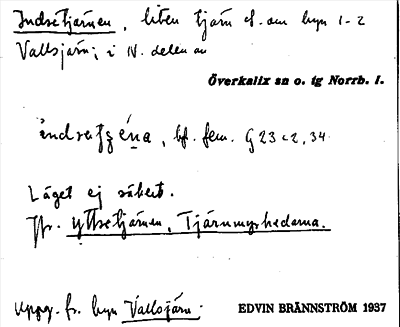 Indsetjärnen, liten tjärn cf. om byn 1-2
Vallsjärn; i N. delen av
Överkalix sn o. tg Norrb. l.
bf. fem. G 23 c 2, 34.
Läget ej säkert.
Jfr. Yttsetjärnen, Tjärnmyrhedarna.
Uppg. fr. byn Vallsjärn.
EDVIN BRÄNNSTRÖM 1937